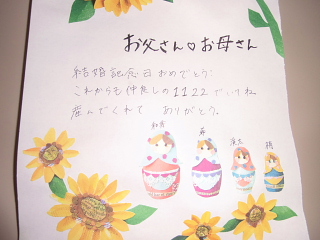 お父さん♡お母さん
結婚記念日おめでとう!
これからも仲良しの1122でいてね
産んでくれて ありがとう。